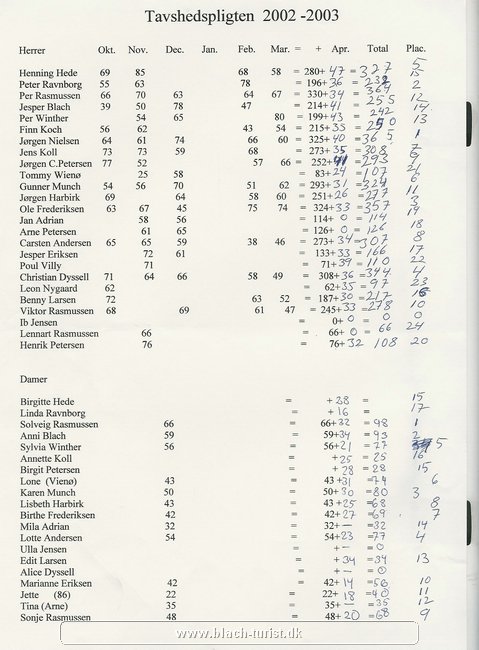 Tavshedspligten 2002 -2003
Herrer Okt. Nov. Dec. Jan. Feb. Mar. = + Apr. Total Plac.
Henning Hede 69 85 68 58 = 280+ 47 = 327 5
Peter Ravnborg 55 63 78 = 196+ 36 = 232 15
Per Rasmussen 66 70 63 64 67 = 330+ 34 = 364 2
Jesper Blach 39 50 78 47 = 214+ 41 = 255 12
Per Winther 54 65 80 = 199+ 43 = 242 14
Finn Koch 56 62 43 54 = 215+ 35 = 250 13
Jørgen Nielsen 64 61 74 66 60 = 325+ 40 = 365 1
Jens Koll 73 73 59 68 = 273+ 35 = 308 7
Jørgen C.Petersen 77 52 57 66 = 252+ 41 = 293
Tommy Wienø 25 58 = 83+ 24 = 107 21
Gunner Munch 54 56 70 51 62 = 293+ 31 = 324 6
Jørgen Harbirk 69 64 58 60 = 251+ 26 = 277 11
Ole Frederiksen 63 67 45 75 74 = 324+ 33 = 357 3
Jan Adrian 58 56 = 114+ 0 = 114 19
Arne Petersen 61 65 = 126+ 0 = 126 18
Carsten Andersen 65 65 59 38 46 = 273+ 34 = 307 8
Jesper Eriksen 72 61 = 133+ 33 = 166 17
Poul Villy 71 = 71+ 39 = 110 22
Christian Dyssell 71 64 66 58 49 = 308+ 36 = 344 4
Leon Nygaard 62 = 62+ 35 = 97 23
Benny Larsen 72 63 52 = 187+ 30 = 217 16
Viktor Rasmussen 68 69 61 47 = 245+ 33 = 278 10
Ib Jensen = 0+ 0 = 0 0
Lennart Rasmussen 66 = 66+ 0 = 66 24
Henrik Petersen 76 = 76+ 32 108 20
Damer
Birgitte Hede = + 28 = 15
Linda Ravnborg = + 16 = 17
Solveig Rasmussen 66 = 66+ 32 = 98 1
Anni Blach 59 = 59+ 34 = 93 2
Sylvia Winther 56 = 56+ 21 = 77 5
Annette Koll = + 25 = 25 16
Birgit Petersen = + 28 = 28 15
Lone (Vienø) 43 = 43 + 31 = 74 6
Karen Munch 50 = 50+ 30 = 80 3
Lisbeth Harbirk 43 = 43 + 25 = 68 8
Birthe Frederiksen 42 = 42+ 27 = 69 7
Mila Adrian 32 = 32+ — = 32 14
Lotte Andersen 54 = 54+ 23 = 77 4
Ulla Jensen = + — = 0
Edit Larsen = + 34 = 34 13
Alice Dyssell = + — = 0
Marianne Eriksen 42 = 42+ 14 = 56 10
Jette (86) 22 = 22+ 18 = 40 11
Tina (Arne) 35 = 35+ — = 35 12
Sonje Rasmussen 48 = 48+ 20 = 68 9
www.blach-turist.dk